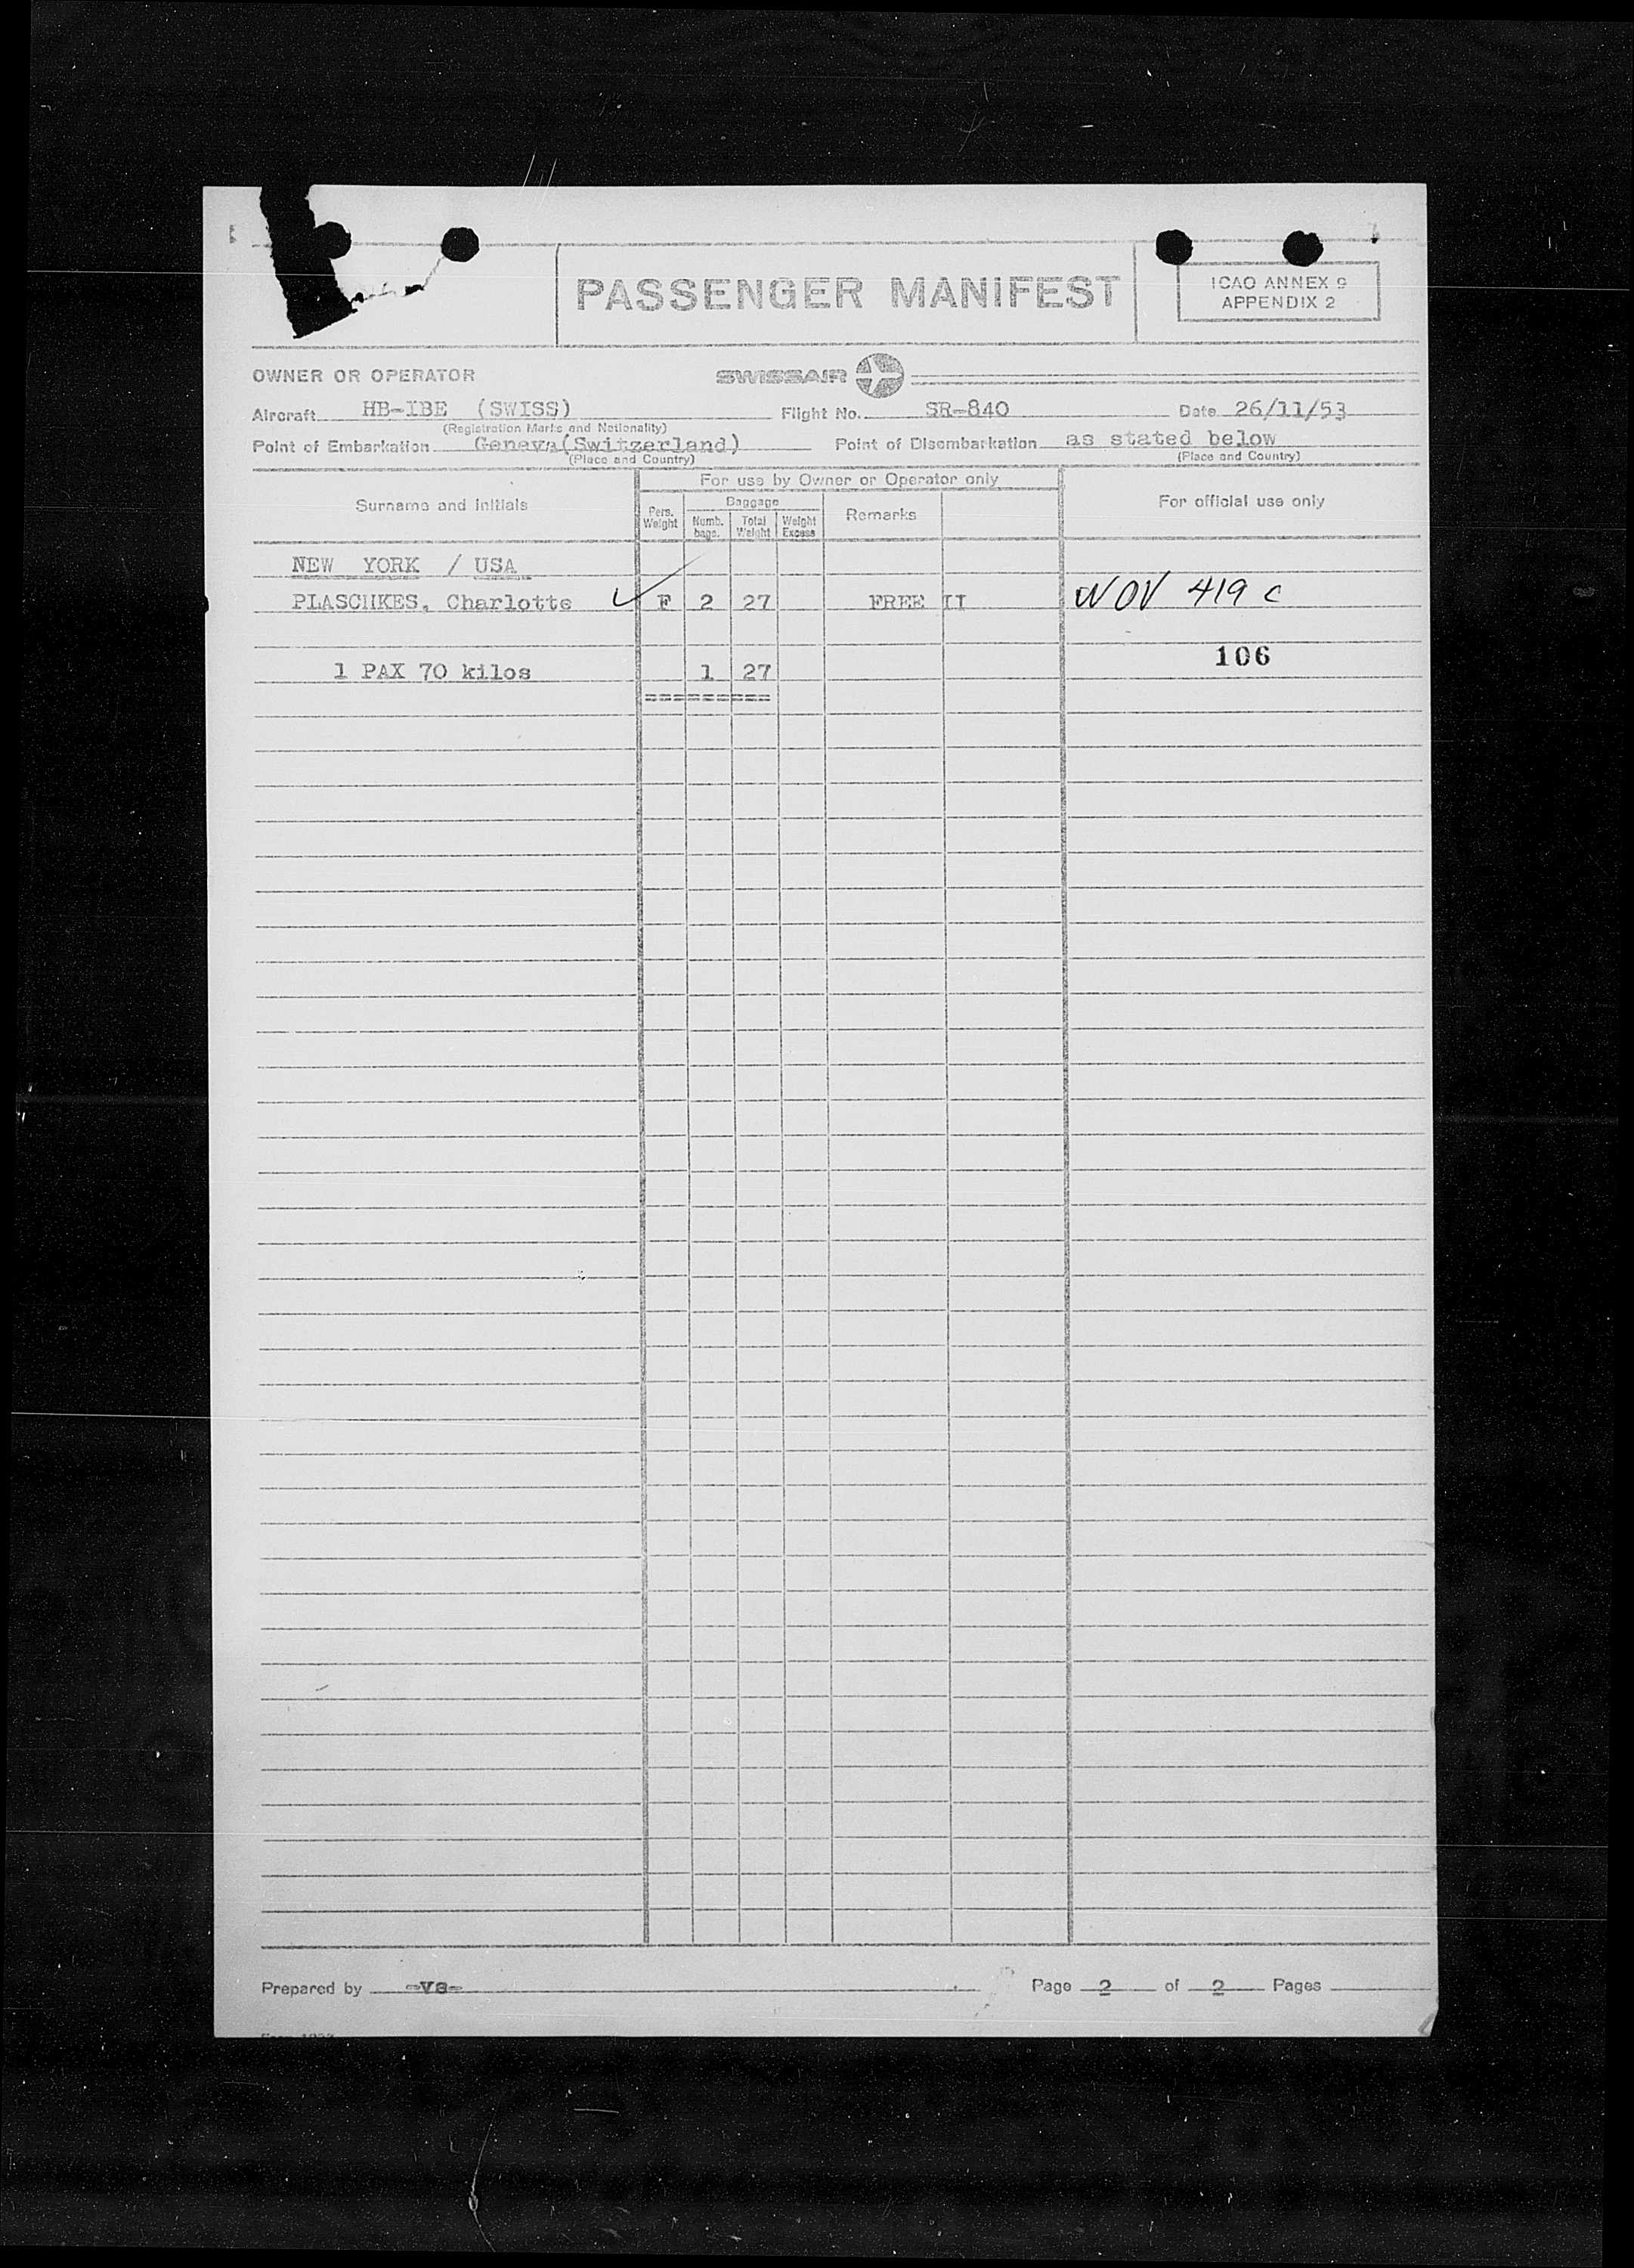 PASSENGER MANIFEST
ICAO ANNEX 9
APPENDIX 2
OWNER OR OPERATOR
SWISSAIR
Aircraft HB-IBE (SWISS) Flight No. SR-840 Date 26/11/53
(Registration Marks and Nationality)
Point of Embarkation Geneva(Switzerland) Point of Disembarkation as stated below
(Place and Country) (Place and Country)
For use by Owner or Operator only
Surname and initials Pers. Weight Baggage Numb. bags. Total Weight Weight Excess Remarks For official use only
NEW YORK / USA
PLASCHKES, Charlotte F 2 27 FREE II NOV 419 C
106
1 PAX 70 kilos 1 27
=========
Prepared by -va- Page 2 of 2 Pages